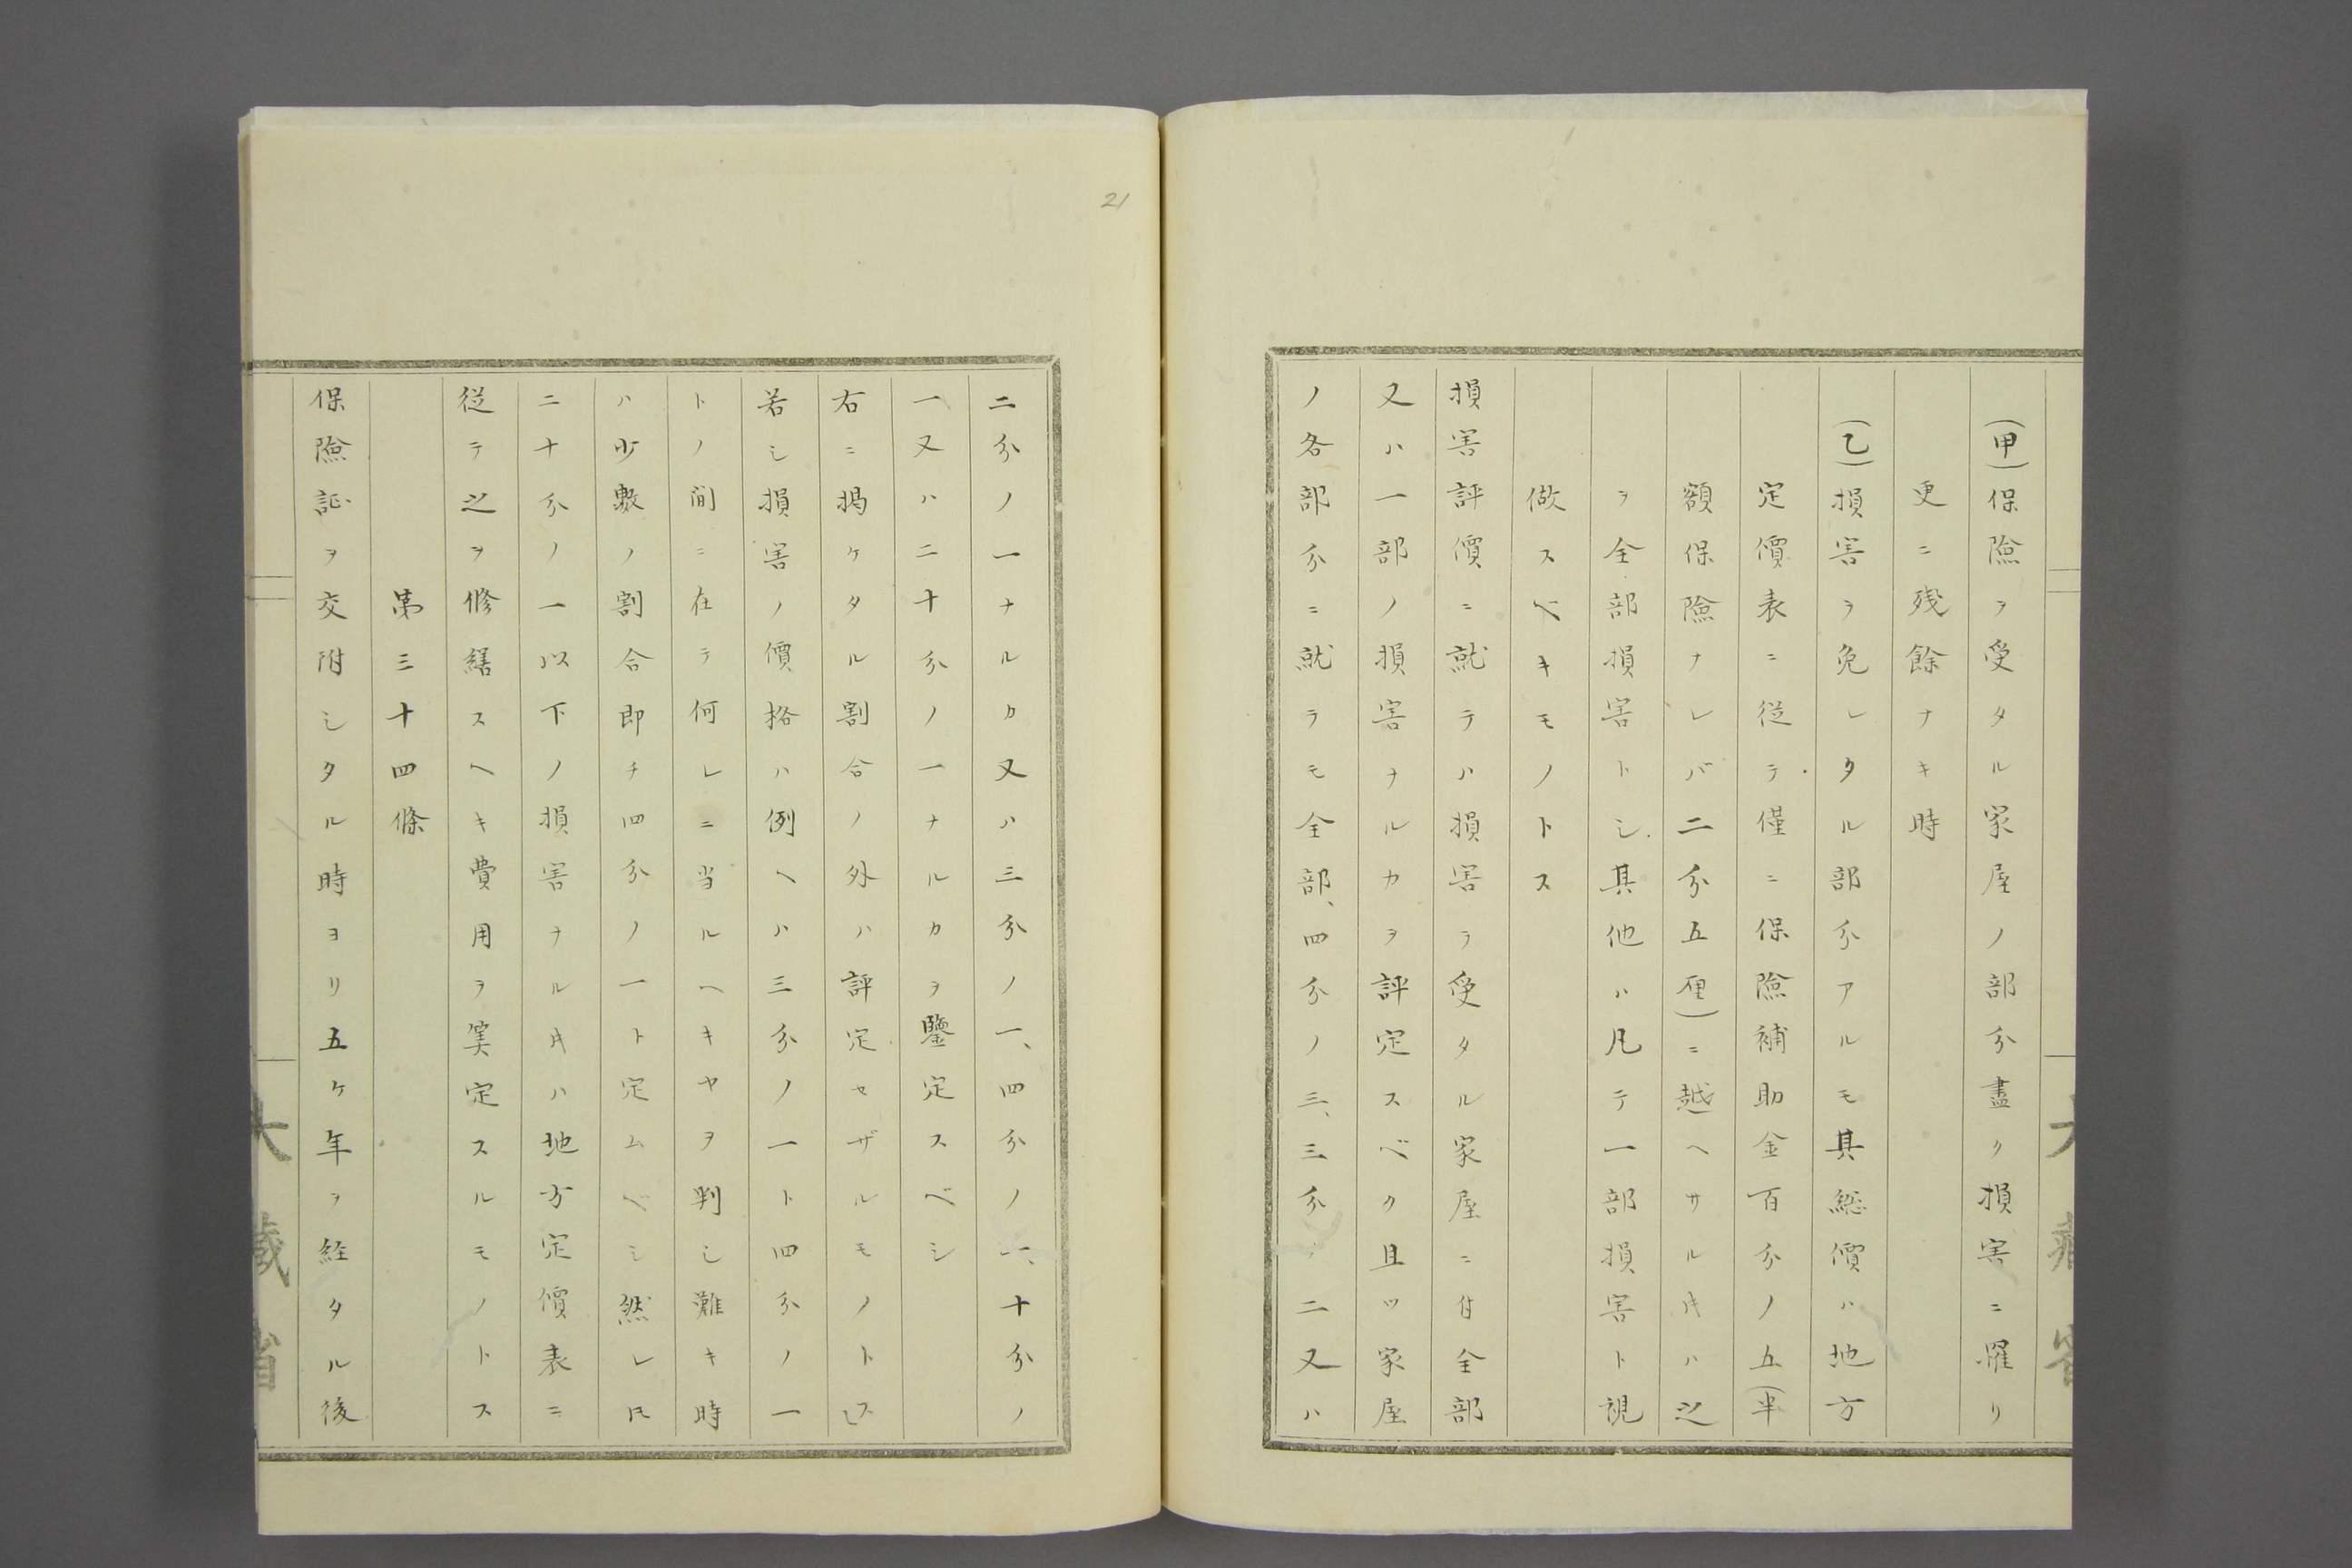 (甲)保險ヲ受タル家屋ノ部分盡ク損害ニ罹リ
更ニ残餘ナキ時
(乙)損害ヲ免レタル部分アルモ其総價ハ地方
定價表ニ従テ僅ニ保險補助金百分ノ五(半
額保險ナレバ二分五厘)ニ越ヘサル片ハ之
ヲ全部損害トシ其他ハ凡テ一部損害ト視
做スベキモノトス
損害評價ニ就テハ損害ヲ受タル家屋ニ付全部
又ハ一部ノ損害ナルカヲ評定スベク且ツ家屋
ノ各部分ニ就ラモ全部、四分ノ三、三分ノ二又ハ
二分ノ一ナルカ又ハ三分ノ一、四分ノ一、十分ノ
一又ハ二十分ノ一ナルカヲ鑒定スベシ
右ニ掲ケタル割合ノ外ハ評定セザルモノトス
若シ損害ノ價格ハ例ヘハ三分ノ一ト四分ノ一
トノ間ニ在テ何レニ当ルヘキヤヲ判シ難キ時
ハ少数ノ割合即チ四分ノ一ト定ムベシ然レ𪜈
二十分ノ一以下ノ損害ナル片ハ地方定價表ニ
従テ之ヲ修繕スヘキ費用ヲ筭定スルモノトス
第三十四條
保險証ヲ交附シタル時ヨリ五ケ年ヲ経タル後
21
大藏省